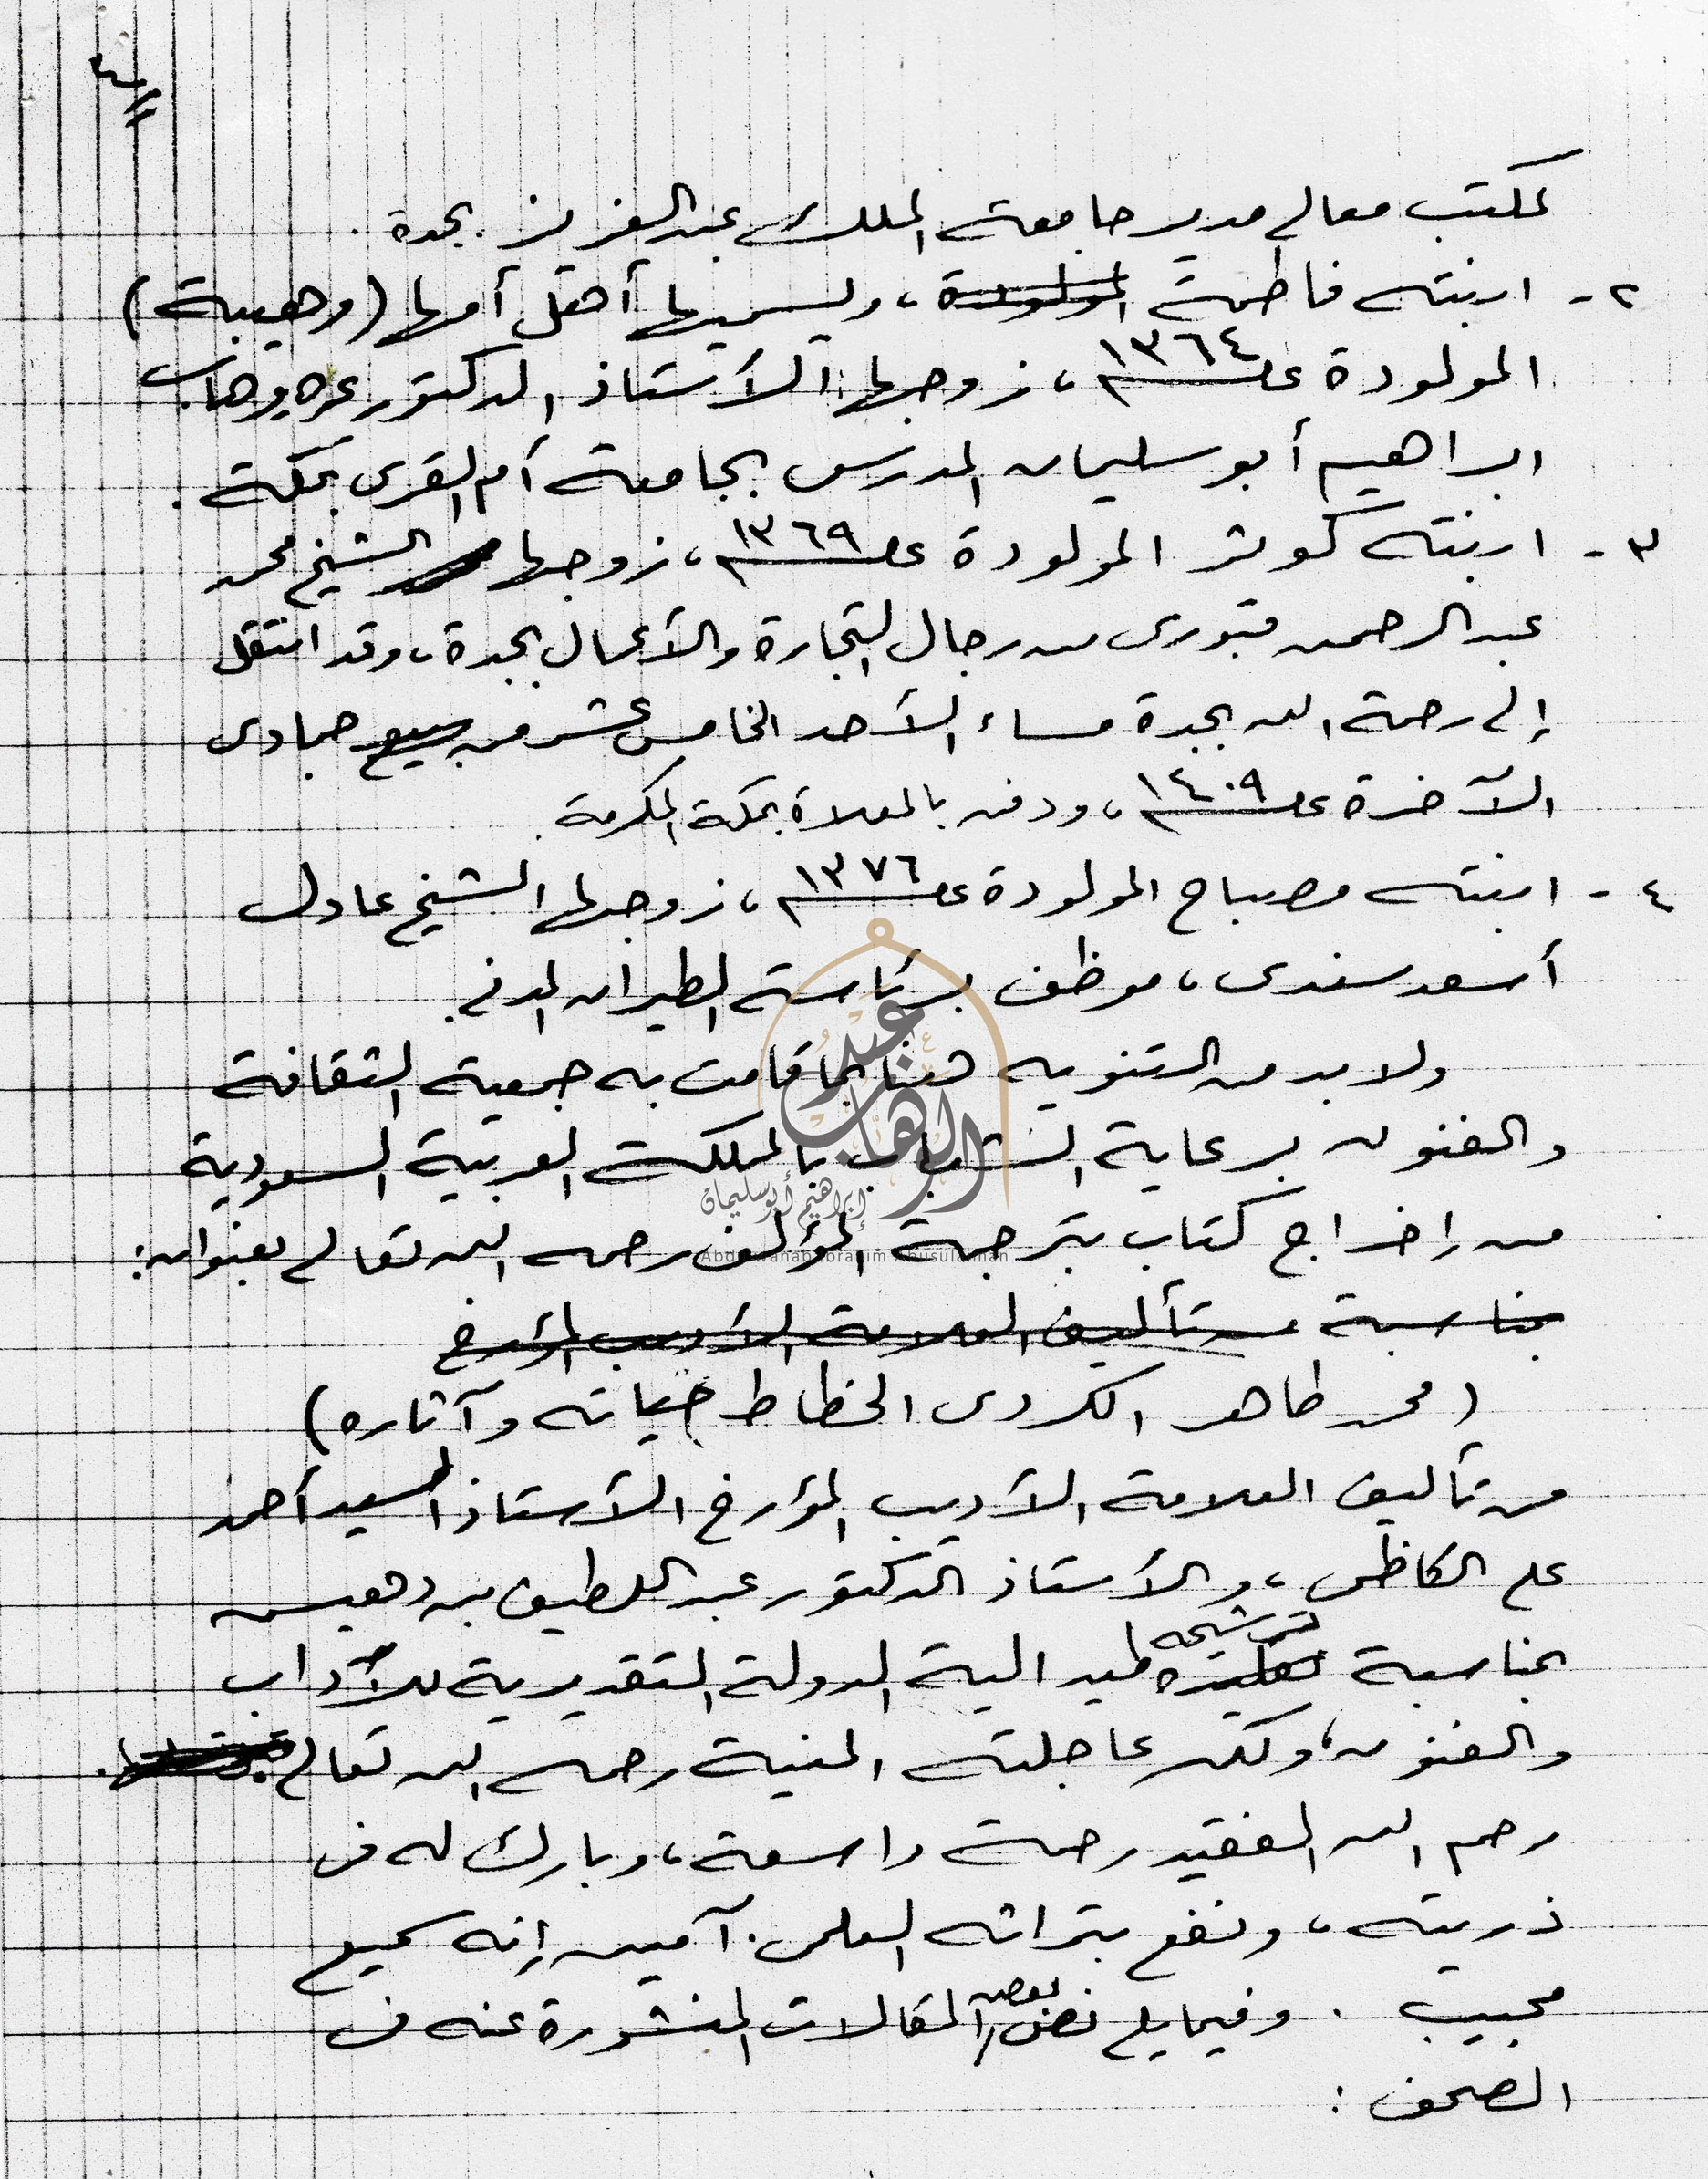 لمكتب معالي مدير جامعة الملك عبدالعزيز بجدة.
٢- ابنته فاطمة المولودة، ويسميها أهل أمها (وهيبة)
المولودة عام ١٣٦٤، زوجها الأستاذ الدكتور عبدالوهاب
ابراهيم أبو سليمان المدرس بجامعة أم القرى بمكة.
٣- ابنته كوثر المولودة عام ١٣٦٩، زوجها الشيخ محمد
عبدالرحمن قبورى من رجال التجارة والأعمال بجدة، وقد انتقل
إلى رحمة الله بجدة مساء الأحد الخامس عشر من ربيع جمادى
الآخرة عام ١٤٠٩، ودفن بالمعلاة بمكة المكرمة.
٤- ابنته مصباح المولودة عام ١٣٧٦، زوجها الشيخ عادل
أسعد سندى، موظف برئاسة الطيران المدني.
ولابد من التنويه هنا بما قامت به جمعية الثقافة
والفنون برعاية الشباب بالمملكة العربية السعودية
من إخراج كتاب بترجمة المؤلف رحمه الله تعالى بعنوان:
بمناسبة من تأليف العلامة الأديب المؤرخ
(محمد طاهر الكردى الخطاط حياته وآثاره)
من تأليف العلامة الأديب المؤرخ الأستاذ السيد أحمد
على الكاظمى، والأستاذ الدكتور عبداللطيف بن دهيس
بمناسبة ترشيحه لميدالية الدولة التقديرية للآداب
والفنون، ولكن عاجلته المنية رحمه الله تعالى
رحم الله الفقيد رحمة واسعة، وبارك له فى
ذريته، ونفع بتراثه العلمى. آمين إنه سميع
مجيب. وفيما يلي نص بعض المقالات المنشورة عنه فى
الصحف:
عبد الوهاب
إبراهيم أبو سليمان
Abdulwahab Ibrahim Abusulaiman